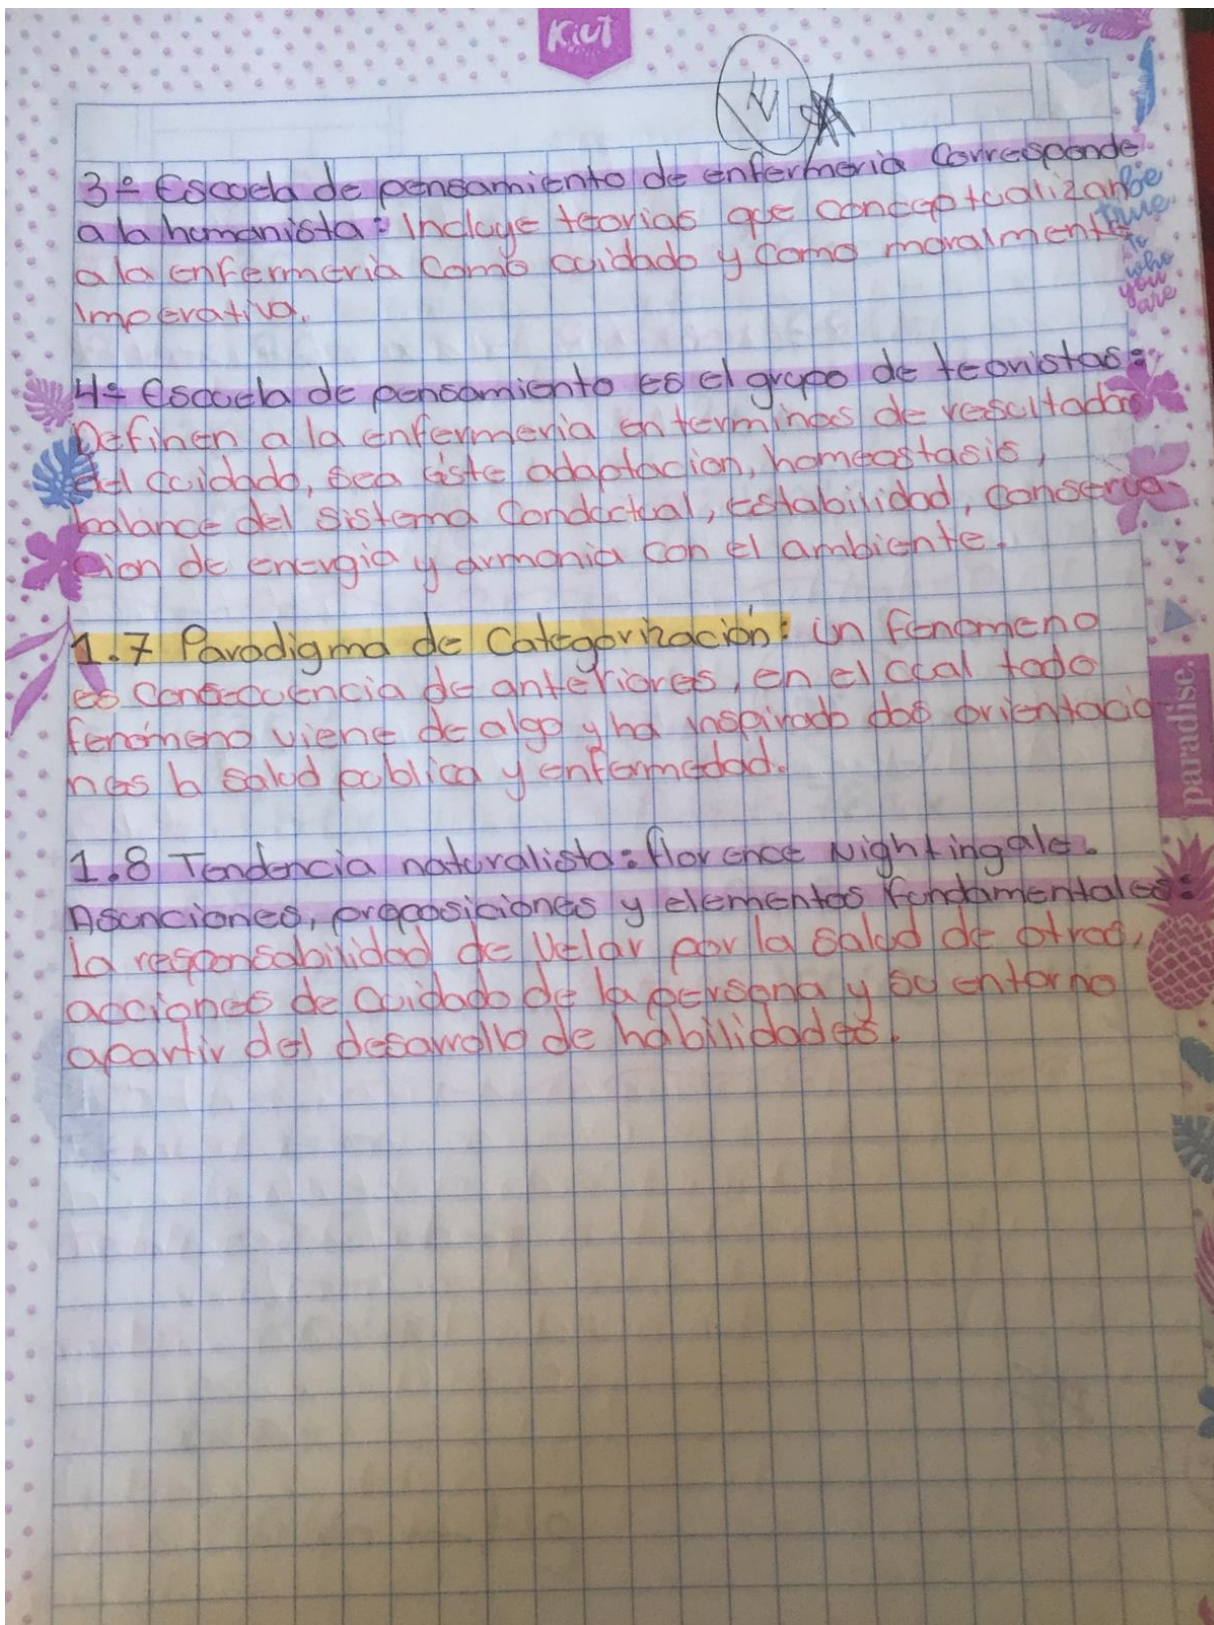 Kiut
3º Escuela de pensamiento de enfermeria Corresponde
a la humanista: Incluye teorias que conceptualizan
a la enfermeria como cuidado y como moralmente
imperativa.
be
true
to
who
you
are
4º Escuela de pensamiento es el grupo de teoristas:
Definen a la enfermeria en terminos de resultados
del cuidado, sea éste adaptacion, homeostasis,
balance del sistema conductual, estabilidad, conserva
cion de energia y armonia con el ambiente.
1.7 Paradigma de Categorización: un fenomeno
es consecuencia de anteriores, en el cual todo
fenómeno viene de algo y ha inspirado dos orientacio
nes la salud publica y enfermedad.
paradise.
1.8 Tendencia naturalista: florence Nightingale.
Asunciones, proposiciones y elementos fundamentales:
la responsabilidad de velar por la salud de otros,
acciones de cuidado de la persona y su entorno
apartir del desarrollo de habilidades.